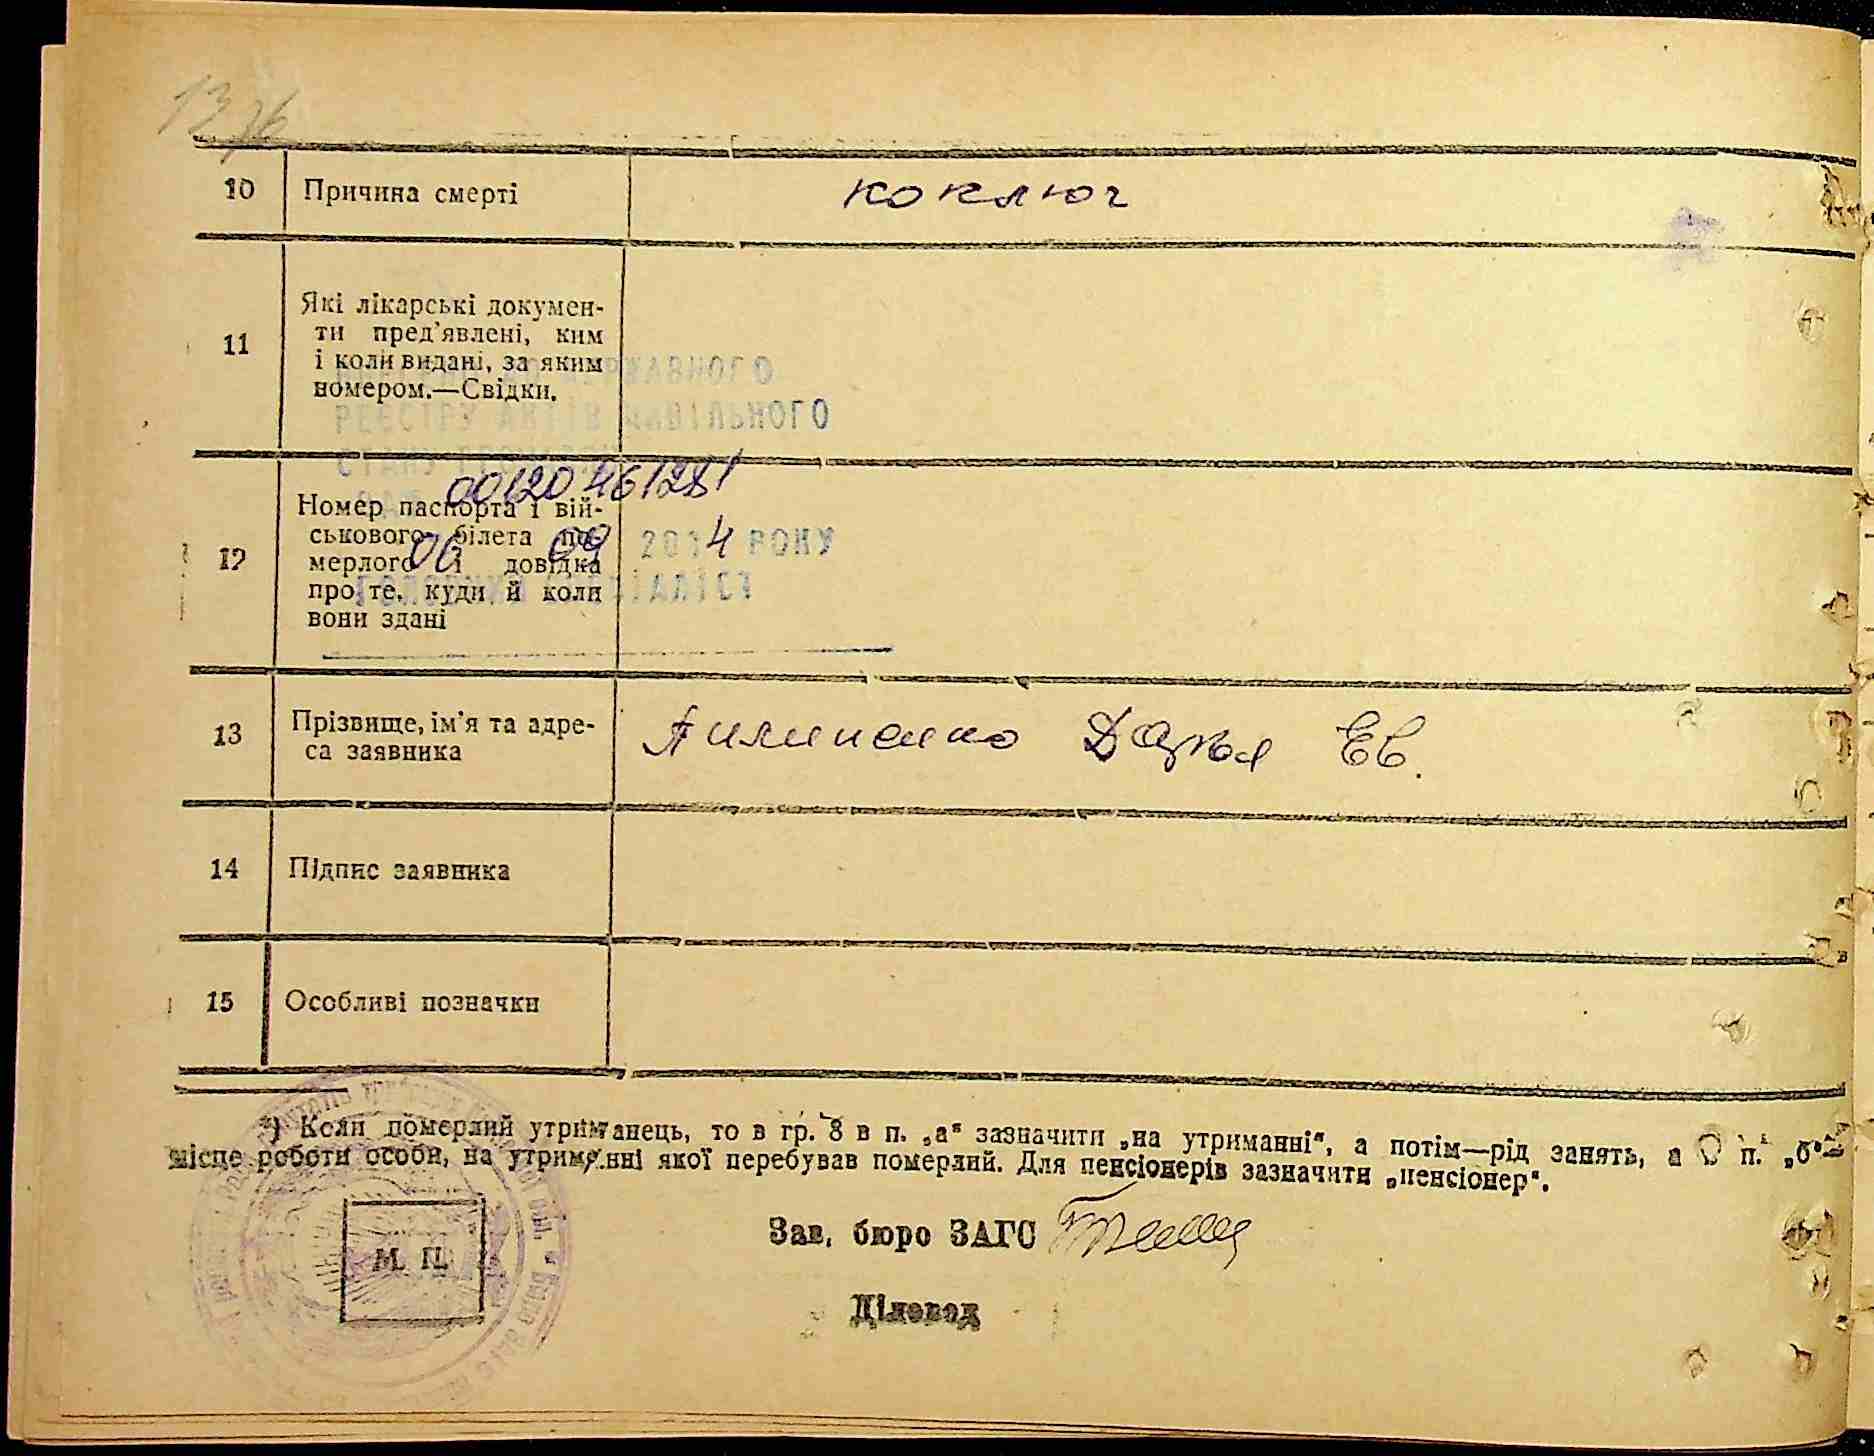 10 Причина смерті коключ
11 Які лікарські докумен-
ти пред'явлені, ким
і коли видані, за яким
номером.—Свідки.
ДЕРЖАВНОГО
РЕЄСТРУ АКТІВ ЦИВІЛЬНОГО
СТАНУ
00120461281
12 Номер паспорта і вій-
ськового білета по-
мерлого і довідка
про те, куди й коли
вони здані
06 09 2014 РОКУ
ГОЛОВНИЙ СПЕЦІАЛІСТ
13 Прізвище, ім'я та адре-
са заявника
Дарья Ев.
14 Підпис заявника
15 Особливі позначки
*) Коли померлий утриманець, то в гр. 8 в п. „а“ зазначити „на утриманні“, а потім—рід занять, а в п. „б“—
місце роботи особи, на утриманні якої перебував померлий. Для пенсіонерів зазначити „пенсіонер“.
М. П.
Зав. бюро ЗАГС
Діловод